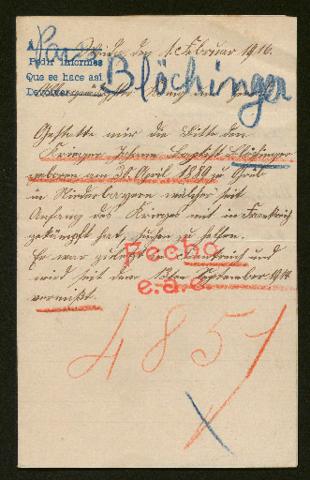 den 1. Februar 1916.
A
Pedir informes
Que se hace así
Devolver
Blöchinger
Gestatte mir die Bitte den
Krieger Johann Baptist Blöchinger
geboren am 30. April 1889 zu
in Niederbayern welcher seit
Anfang des Krieges mit in Frankreich
gekämpft hat, suchen zu helfen.
Er war zuletzt in Frankreich und
wird seit dem September 1914
vermißt.
Fecho
e.a.c.
4857